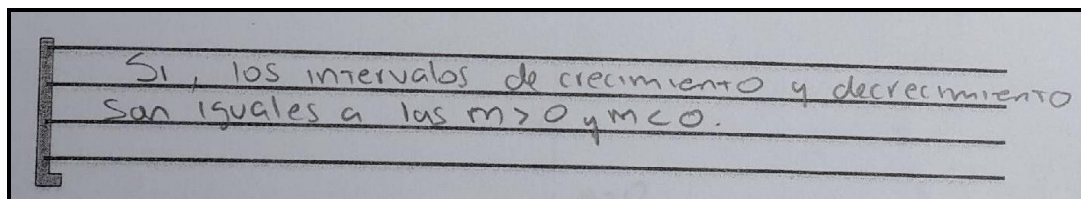 Si, los intervalos de crecimiento y decrecimiento
son iguales a las m>0 y m<0.